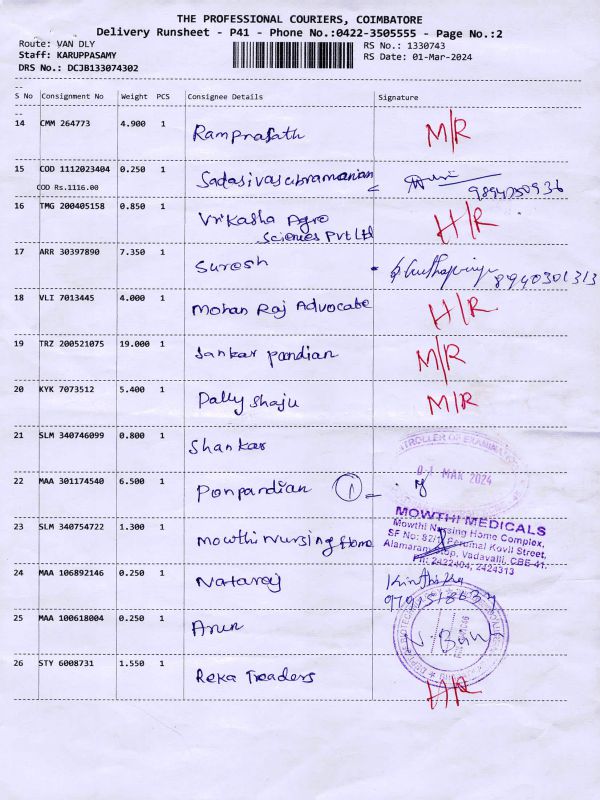 THE PROFESSIONAL COURIERS, COIMBATORE
Delivery Runsheet - P41 - Phone No.:0422-3505555 - Page No.:2
Route: VAN DLY RS No.: 1330743
Staff: KARUPPASAMY RS Date: 01-Mar-2024
DRS No.: DCJB133074302
S No Consignment No Weight PCS Consignee Details Signature
14 CMM 264773 4.900 1 Ramprasath M/R
15 COD 1112023404 0.250 1 Sadasivasubramanian
COD Rs.1116.00 9894050936
16 TMG 200405158 0.850 1 Vrikasha Agro H/R
Sciences Pvt Ltd
17 ARR 30397890 7.350 1 Suresh 8940301313
18 VLI 7013445 4.000 1 Mohan Raj Advocate H/R
19 TRZ 200521075 19.000 1 Sankar pandian M/R
20 KYK 7073512 5.400 1 Pally Shaju M/R
21 SLM 340746099 0.800 1 Shankar
TROLLER OF EXAMINAT
01 MAR 2024
22 MAA 301174540 6.500 1 Ponpandian 1
MOWTHI MEDICALS
Mowthi Nursing Home Complex,
23 SLM 340754722 1.300 1 Mowthi Nursing Home
SF No: 82/ Perumal Kovil Street,
Vadavalli, CBE-41.
Ph: 2422404, 2424313
24 MAA 106892146 0.250 1 Nataraj
25 MAA 100618004 0.250 1 Arun
26 STY 6008731 1.550 1 Reka Traders H/R